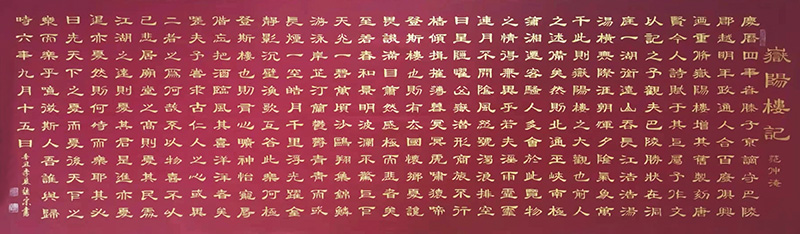 嶽陽樓記 范仲淹
慶曆四年春滕子京謫守巴陵
郡越明年政通人和百廢俱興
乃重修嶽陽樓增其舊制刻唐
賢今人詩賦于其上屬予作文
以記之予觀夫巴陵勝狀在洞
庭一湖銜遠山吞長江浩浩湯
湯橫無際涯朝暉夕陰氣象萬
千此則嶽陽樓之大觀也前人
之述備矣然則北通巫峽南極
瀟湘遷客騷人多會於此覽物
之情得無異乎若夫淫雨霏霏
連月不開陰風怒號濁浪排空
日星隱曜山嶽潛形商旅不行
檣傾楫摧薄暮冥冥虎嘯猿啼
登斯樓也則有去國懷鄉憂讒
畏譏滿目蕭然感極而悲者矣
至若春和景明波瀾不驚上下
天光一碧萬頃沙鷗翔集錦鱗
游泳岸芷汀蘭鬱鬱青青而或
長煙一空皓月千里浮光躍金
靜影沉璧漁歌互答此樂何極
登斯樓也則有心曠神怡寵辱
偕忘把酒臨風其喜洋洋者矣
嗟夫予嘗求古仁人之心或異
二者之為何哉不以物喜不以
己悲居廟堂之高則憂其民處
江湖之遠則憂其君是進亦憂
退亦憂然則何時而樂耶其必
曰先天下之憂而憂後天下之
樂而樂乎噫微斯人吾誰與歸
時六年九月十五日